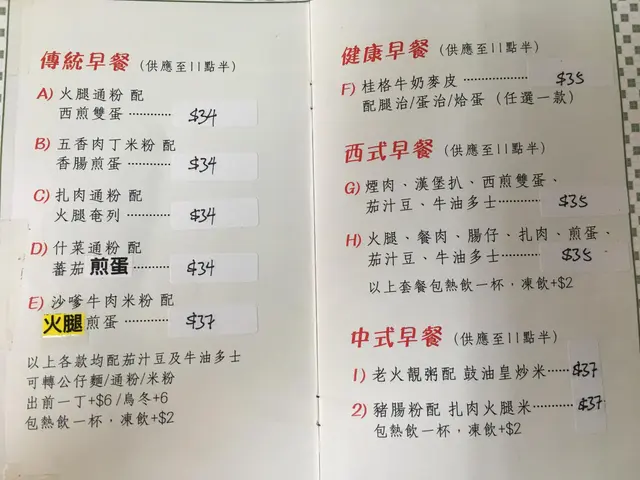 傳統早餐 (供應至11點半)
A) 火腿通粉 配
西煎雙蛋 ········ $34
B) 五香肉丁米粉 配
香腸煎蛋 ········ $34
C) 扎肉通粉 配
火腿奄列 ········ $34
D) 什菜通粉 配
蕃茄煎蛋 ········ $34
E) 沙嗲牛肉米粉 配
火腿煎蛋 ········ $37
以上各款均配茄汁豆及牛油多士
可轉公仔麵/通粉/米粉
出前一丁+$6/烏冬+6
包熱飲一杯，凍飲+$2
健康早餐 (供應至11點半)
F) 桂格牛奶麥皮 ················ $35
配腿治/蛋治/烚蛋 (任選一款)
西式早餐 (供應至11點半)
G) 煙肉、漢堡扒、西煎雙蛋、
茄汁豆、牛油多士 ········ $35
H) 火腿、餐肉、腸仔、扎肉、煎蛋、
茄汁豆、牛油多士 ········ $35
以上套餐包熱飲一杯，凍飲+$2
中式早餐 (供應至11點半)
1) 老火靚粥配 豉油皇炒米 ····· $37
2) 豬腸粉配 扎肉火腿米 ········ $37
包熱飲一杯，凍飲+$2